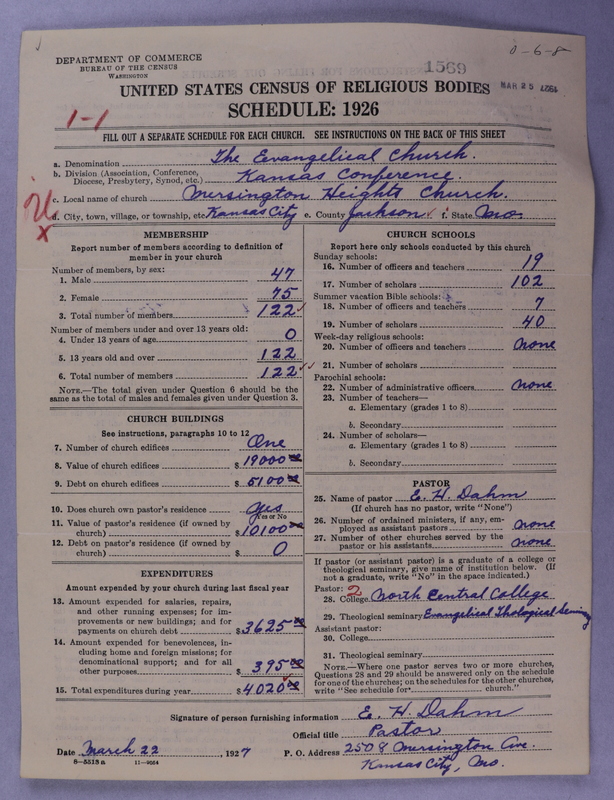 DEPARTMENT OF COMMERCE
BUREAU OF THE CENSUS
WASHINGTON
1569
0-6-8
MAR 25
UNITED STATES CENSUS OF RELIGIOUS BODIES
SCHEDULE: 1926
1-1
FILL OUT A SEPARATE SCHEDULE FOR EACH CHURCH. SEE INSTRUCTIONS ON THE BACK OF THIS SHEET
a. Denomination The Evangelical Church.
b. Division (Association, Conference, Diocese, Presbytery, Synod, etc.) Kansas Conference.
c. Local name of church Mersington Heights Church.
d. City, town, village, or township, etc. Kansas City e. County Jackson f. State Mo.
MEMBERSHIP
Report number of members according to definition of
member in your church
Number of members, by sex:
1. Male 47
2. Female 75
3. Total number of members 122
Number of members under and over 13 years old:
4. Under 13 years of age 0
5. 13 years old and over 122
6. Total number of members 122
NOTE.—The total given under Question 6 should be
same as the total of males and females given under Question 3.
CHURCH BUILDINGS
See instructions, paragraphs 10 to 12
7. Number of church edifices One
8. Value of church edifices $ 19000 00
9. Debt on church edifices $ 5100 00
10. Does church own pastor's residence yes
Yes or No
11. Value of pastor's residence (if owned by
church) $ 10100 00
12. Debt on pastor's residence (if owned by
church) $ 0
EXPENDITURES
Amount expended by your church during last fiscal year
13. Amount expended for salaries, repairs,
and other running expenses; for im-
provements or new buildings; and for
payments on church debt $ 3625 00
14. Amount expended for benevolences, in-
cluding home and foreign missions; for
denominational support; and for all
other purposes $ 395 00
15. Total expenditures during year $ 4020 00
CHURCH SCHOOLS
Report here only schools conducted by this church
Sunday schools:
16. Number of officers and teachers 19
17. Number of scholars 102
Summer vacation Bible schools:
18. Number of officers and teachers 7
19. Number of scholars 40
Week-day religious schools:
20. Number of officers and teachers none
21. Number of scholars
Parochial schools:
22. Number of administrative officers none
23. Number of teachers—
a. Elementary (grades 1 to 8)
b. Secondary
24. Number of scholars—
a. Elementary (grades 1 to 8)
b. Secondary
PASTOR
25. Name of pastor E. H. Dahm
(If church has no pastor, write "None")
26. Number of ordained ministers, if any, em-
ployed as assistant pastors none
27. Number of other churches served by the
pastor or his assistants none
If pastor (or assistant pastor) is a graduate of a college or
theological seminary, give name of institution below. (If
not a graduate, write "No" in the space indicated.)
Pastor: 2
28. College North Central College
29. Theological seminary Evangelical Thological Seminary
Assistant pastor:
30. College
31. Theological seminary
NOTE.—Where one pastor serves two or more churches,
Questions 28 and 29 should be answered only on the schedule
for one of the churches; on the schedules for the other churches,
write "See schedule for church."
Signature of person furnishing information E. H. Dahm
Official title Pastor
Date March 22, 1927 P. O. Address 2508 Mersington Ave.
8-5513 a 11-9054 Kansas City, Mo.